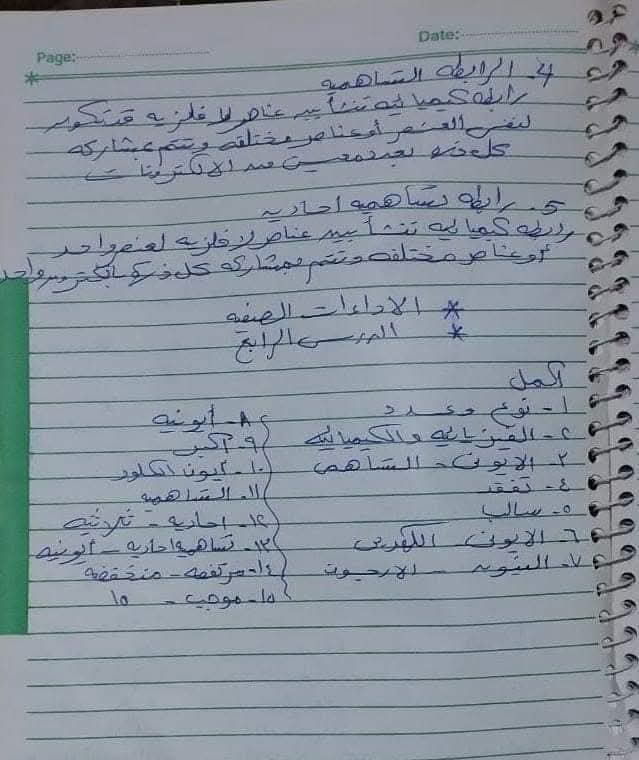 Page:
Date:
4. الرابطه التساهميه
رابطه كيميائيه تنشأ بين عناصر لا فلزيه قد تكون
لنفس العنصر أو عناصر مختلفه وتتم بمشاركه
كل ذره بعدد معين من الالكترونات
5. رابطه تساهميه احاديه
رابطه كيميائيه تنشأ بين عناصر لا فلزيه لعنصر واحد
أو عناصر مختلفه وتتم بمشاركه كل ذره بالكترون واحد
* الاداءات الصفيه
* الدرس الرابع
اكمل
١- نوع وعدد
٢- الفيزيائيه والكيميائيه
٣- الايونى - التساهمى
٤- تفقد
٥- سالب
٦- الايونى الكهربى
٧- النيون - الارجون
٨- أيونيه
٩- أكبر
١٠- ايون الكلور
١١- التساهميه
١٢- احاديه - ثلاثيه
١٣- تساهميه احاديه - أيونيه
١٤- مرتفعه - منخفضه
١٥- موجب - ١٥